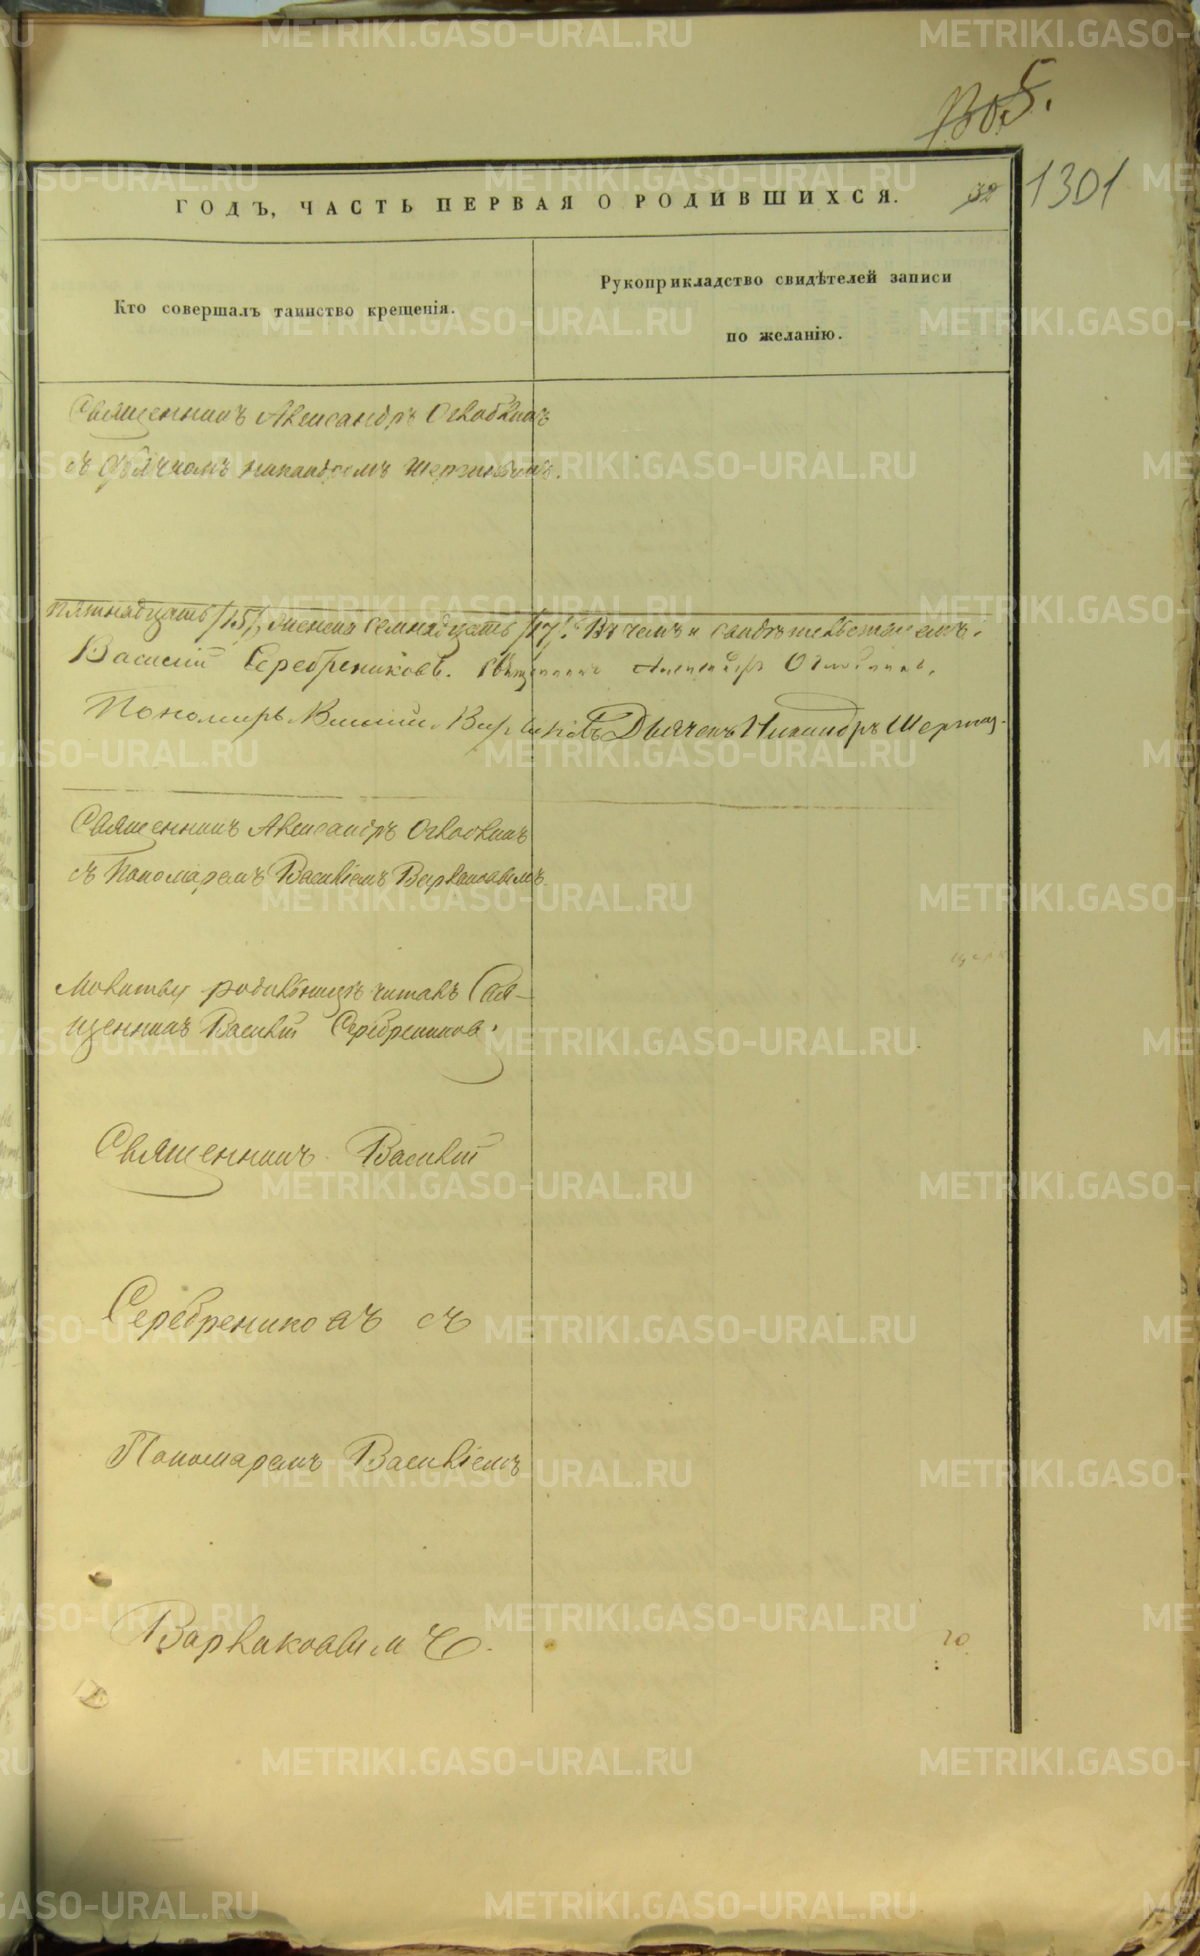 5.
1301
ГОДЪ, ЧАСТЬ ПЕРВАЯ О РОДИВШИХСЯ.
Кто совершалъ таинство крещенія.
Рукоприкладство свидѣтелей записи
по желанію.
Священникъ Александръ
съ Дьячкомъ Никандромъ
пятнадцать /15/, женска семнадцать /17/. Въ чемъ и свидѣтельствуемъ.
Василій Серебрениковъ. Священникъ Александръ
Пономарь Василій Дьячекъ Никандръ
Священникъ Александръ
съ Пономаремъ Василіемъ Варлаковымъ
Молитву родильницѣ читалъ Свя-
щенникъ Василій Серебрениковъ.
Священникъ Василій
Серебрениковъ съ
Пономаремъ Василіемъ
Варлаковымъ.
METRIKI.GASO-URAL.RU